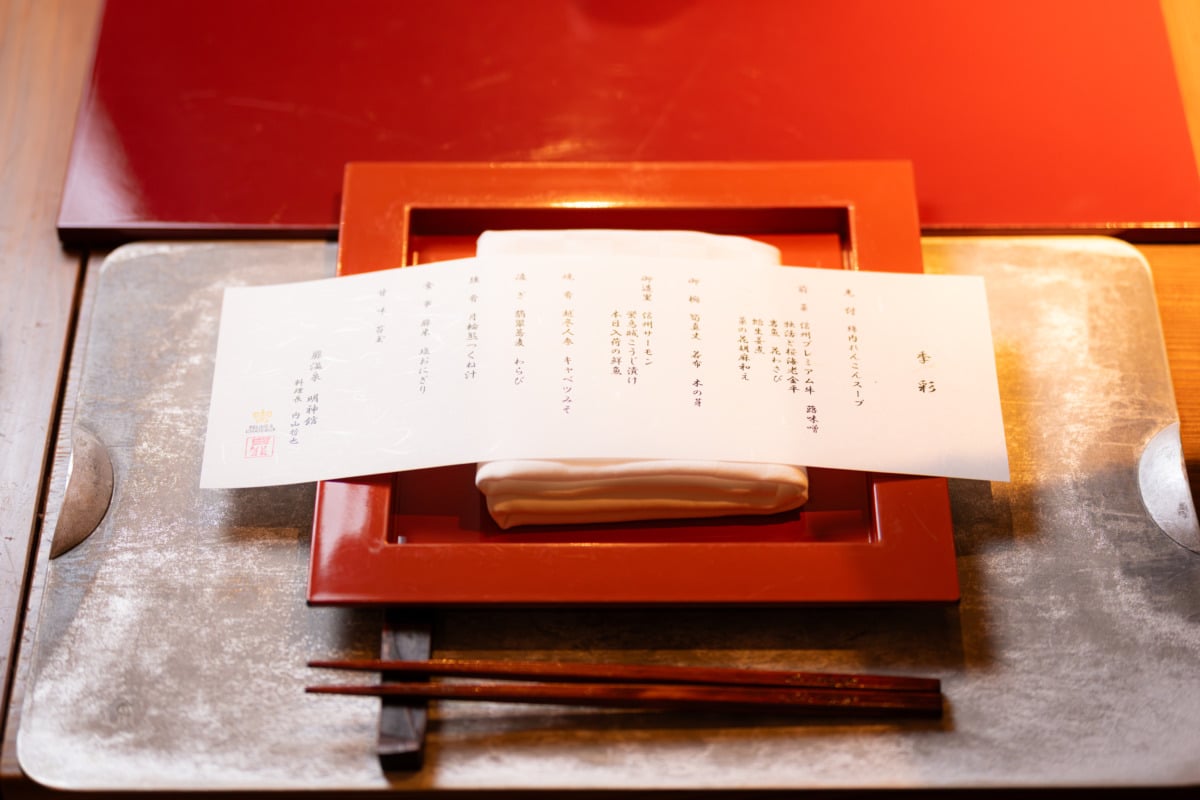 季彩
先付 鶏肉れんこんスープ
前菜 信州プレミアム牛 蕗味噌
独活と桜海老金平
岩魚 花わさび
蛤生姜煮
菜の花胡麻和え
御椀 筍真丈 若布 木の芽
御造里 信州サーモン
安曇城こうじ漬け
本日入荷の鮮魚
焼肴 越冬人参 キャベツみそ
凌ぎ 翡翠蕎麦 わらび
鍋肴 月輪熊つくね汁
食事 藤米 塩おにぎり
甘味 苺
扉温泉 明神館
料理長 内山哲也